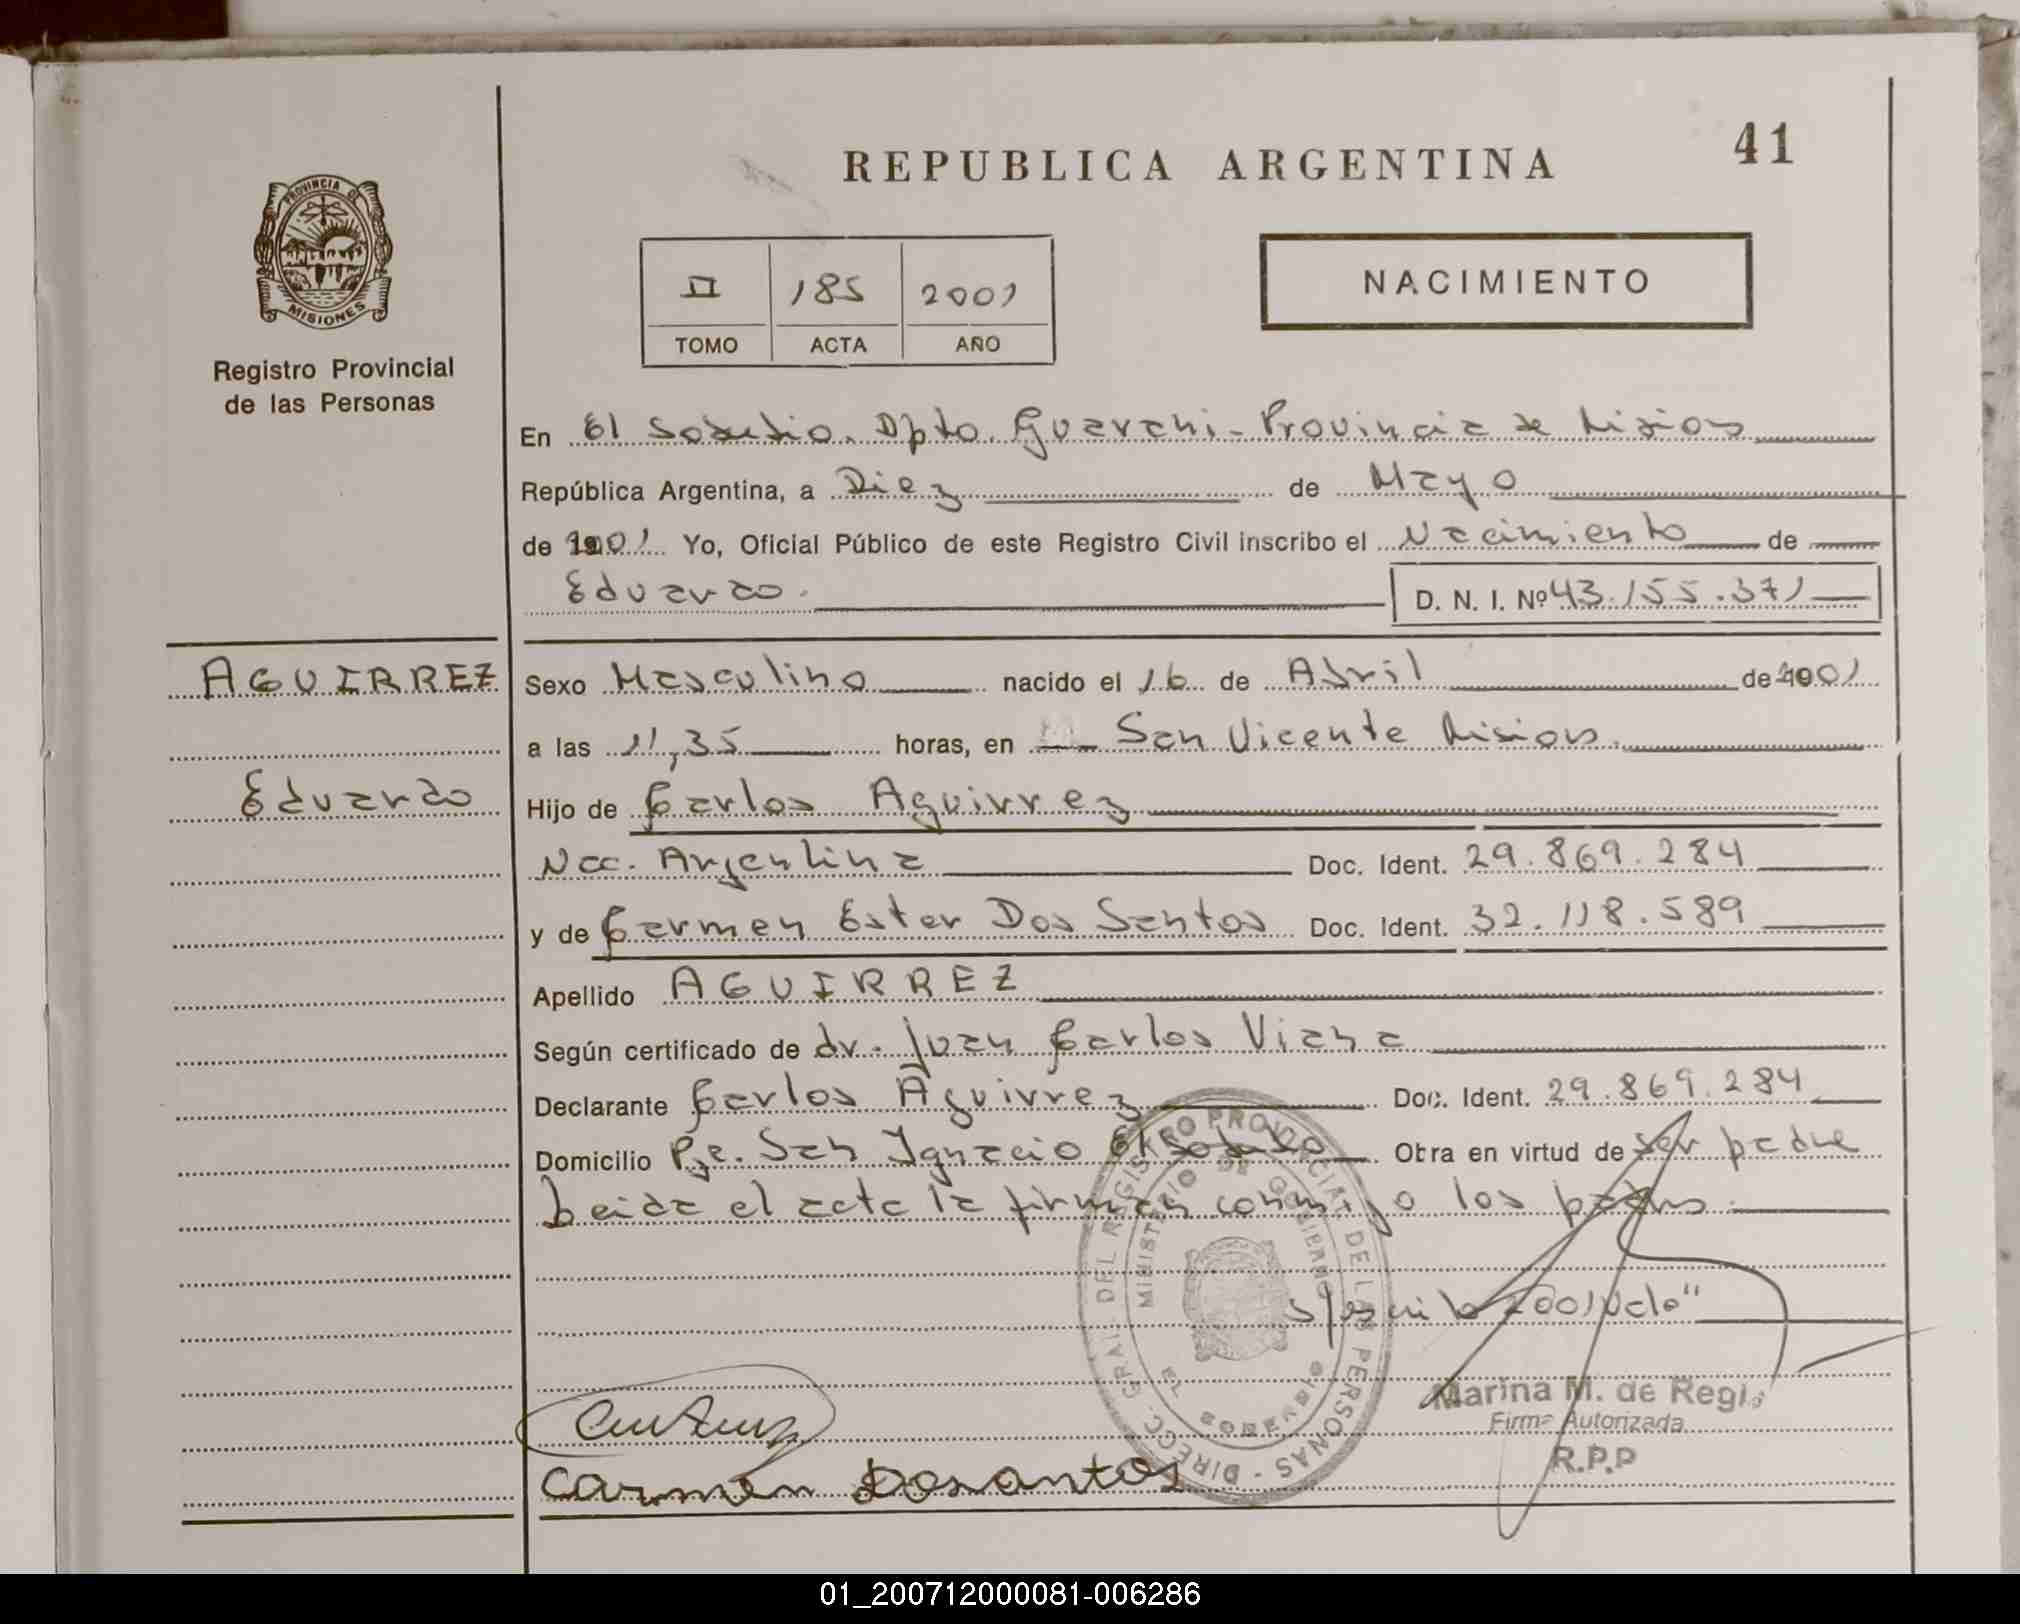 REPUBLICA ARGENTINA
41
PROVINCIA DE
MISIONES
Registro Provincial
de las Personas
II 185 2001
TOMO ACTA AÑO
NACIMIENTO
En El Soberbio. Dpto. Guarani - Provincia de Misiones
República Argentina, a Diez de Mayo
de 2001 Yo, Oficial Público de este Registro Civil inscribo el Nacimiento de
Eduardo. D. N. I. Nº 43.155.371
AGUIRREZ
Sexo Masculino nacido el 16 de Abril de 2001
a las 11,35 horas, en San Vicente Misiones.
Eduardo
Hijo de Carlos Aguirrez
Nac. Argentina Doc. Ident. 29.869.284
y de Carmen Ester Dos Santos Doc. Ident. 32.118.589
Apellido AGUIRREZ
Según certificado de dr. Juan Carlos Viana
Declarante Carlos Aguirrez Doc. Ident. 29.869.284
Domicilio Pje. San Ignacio El Soberbio Obra en virtud de ser padre
Leida el acta la firman conmigo los padres
2001 Vale"
DIRECC. GRAL. DEL REGISTRO PROVINCIAL DE LAS PERSONAS
MINISTERIO DE GOBIERNO
EL SOBERBIO
Marina M. de Regi
Firma Autorizada
R.P.P
Carmen Dosantos
01_200712000081-006286